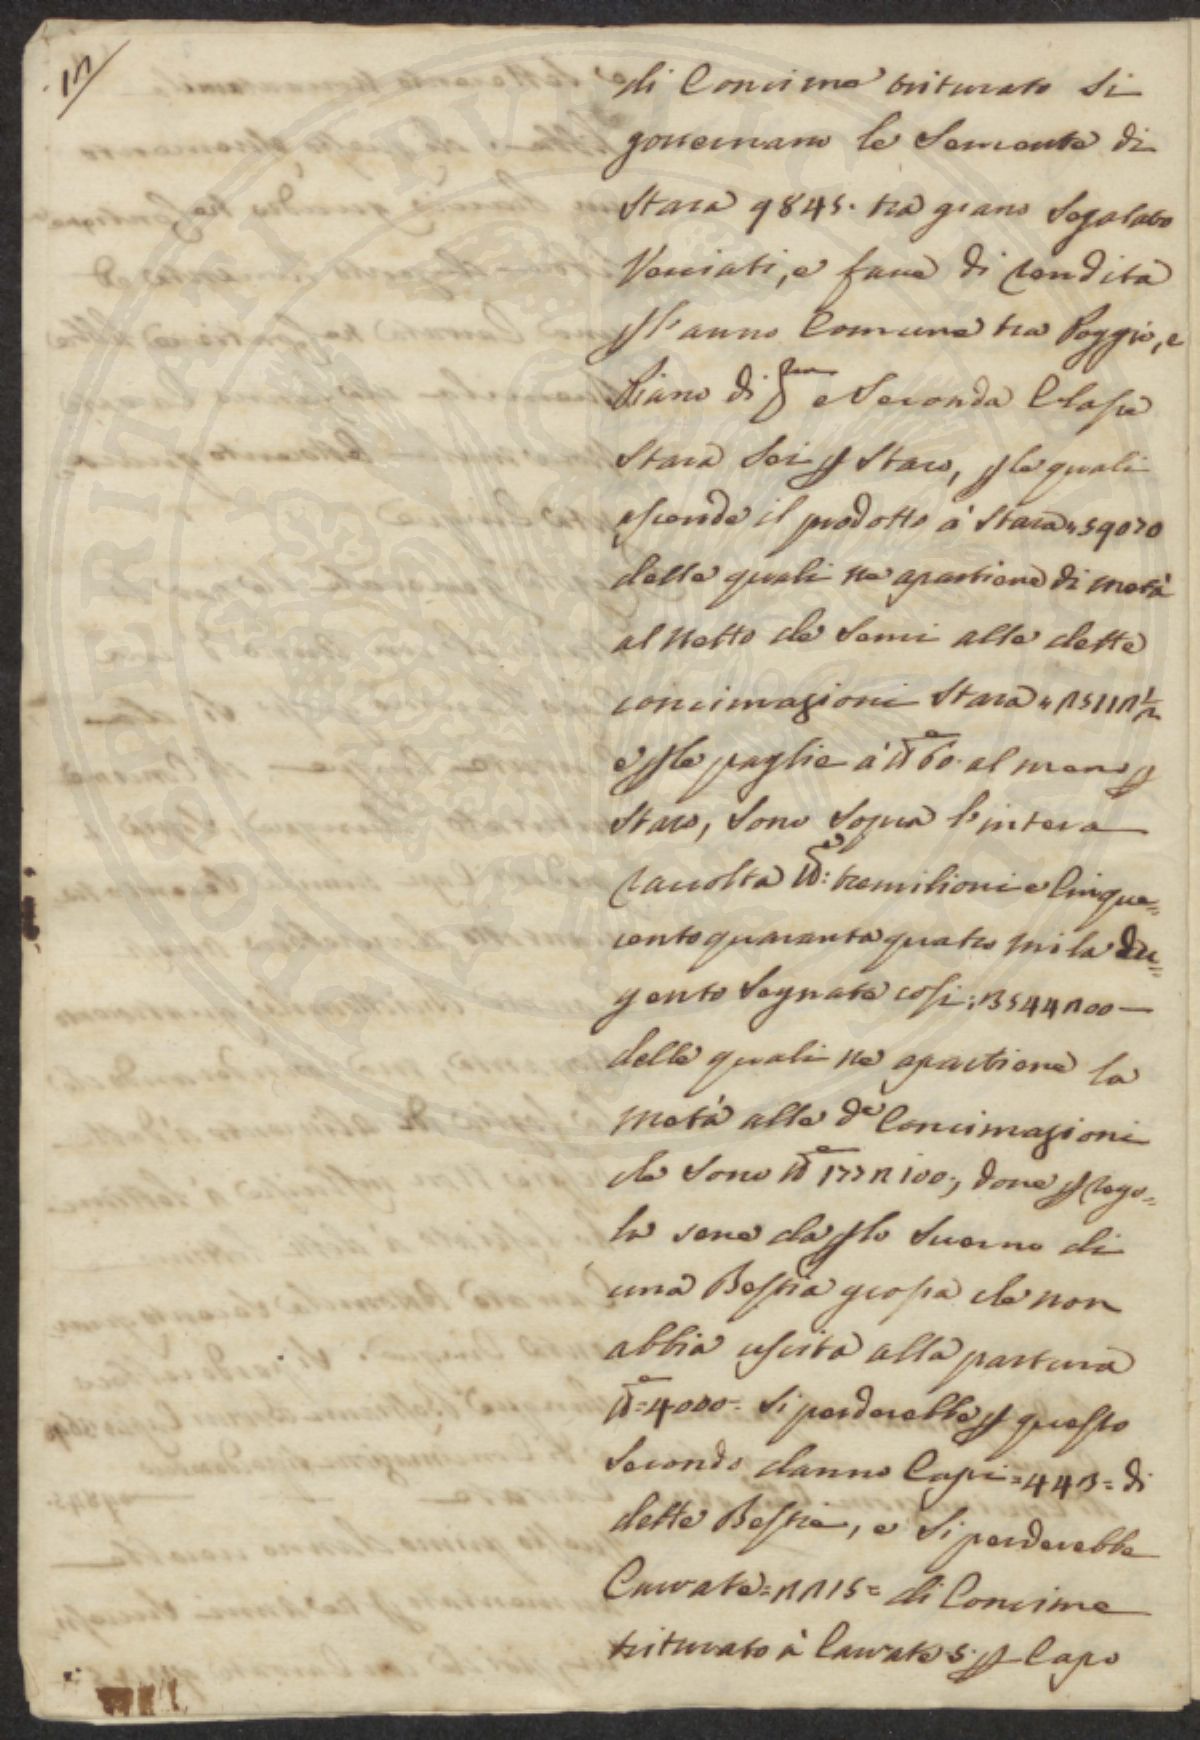 12
di Concime triturato Si
governano le Semente di
Stara 9845. tra grano Segalato
Vecciati, e fave di rendita
ꝑ l'anno Comune tra Poggio, e
Piano di p.ma e Seconda Classe
Stara Sei ꝑ Staro, ꝑ le quali
ascende il prodotto à Stara 59070
delle quali ne apartiene di metà
al Netto de Semi alle dette
concimazioni Stara 25112 1/2
e ꝑ le paglie à lb.e 60. al meno ꝑ
Staro, Sono Sopra l'intera
raccolta lb.e: tremilioni e Cinque=
cento quaranta quatro mila du=
gento Segnate cosi: 3544200 —
delle quali ne apartiene la
Metà alle de Concimazioni
che Sono lb.e 1772100:, dove ꝑ rego=
la sene da ꝑ lo Sverno di
una Bestia grossa che non
abbia uscita alla pastura
lb.e = 4000 = Si perderebbe ꝑ questo
Secondo danno Capi = 443 = di
dette Bestie, e Si perderebbe
Carrate = 2215 = di Concime
triturato à Carrate 5 ꝑ Capo
PERITI PVBLICI